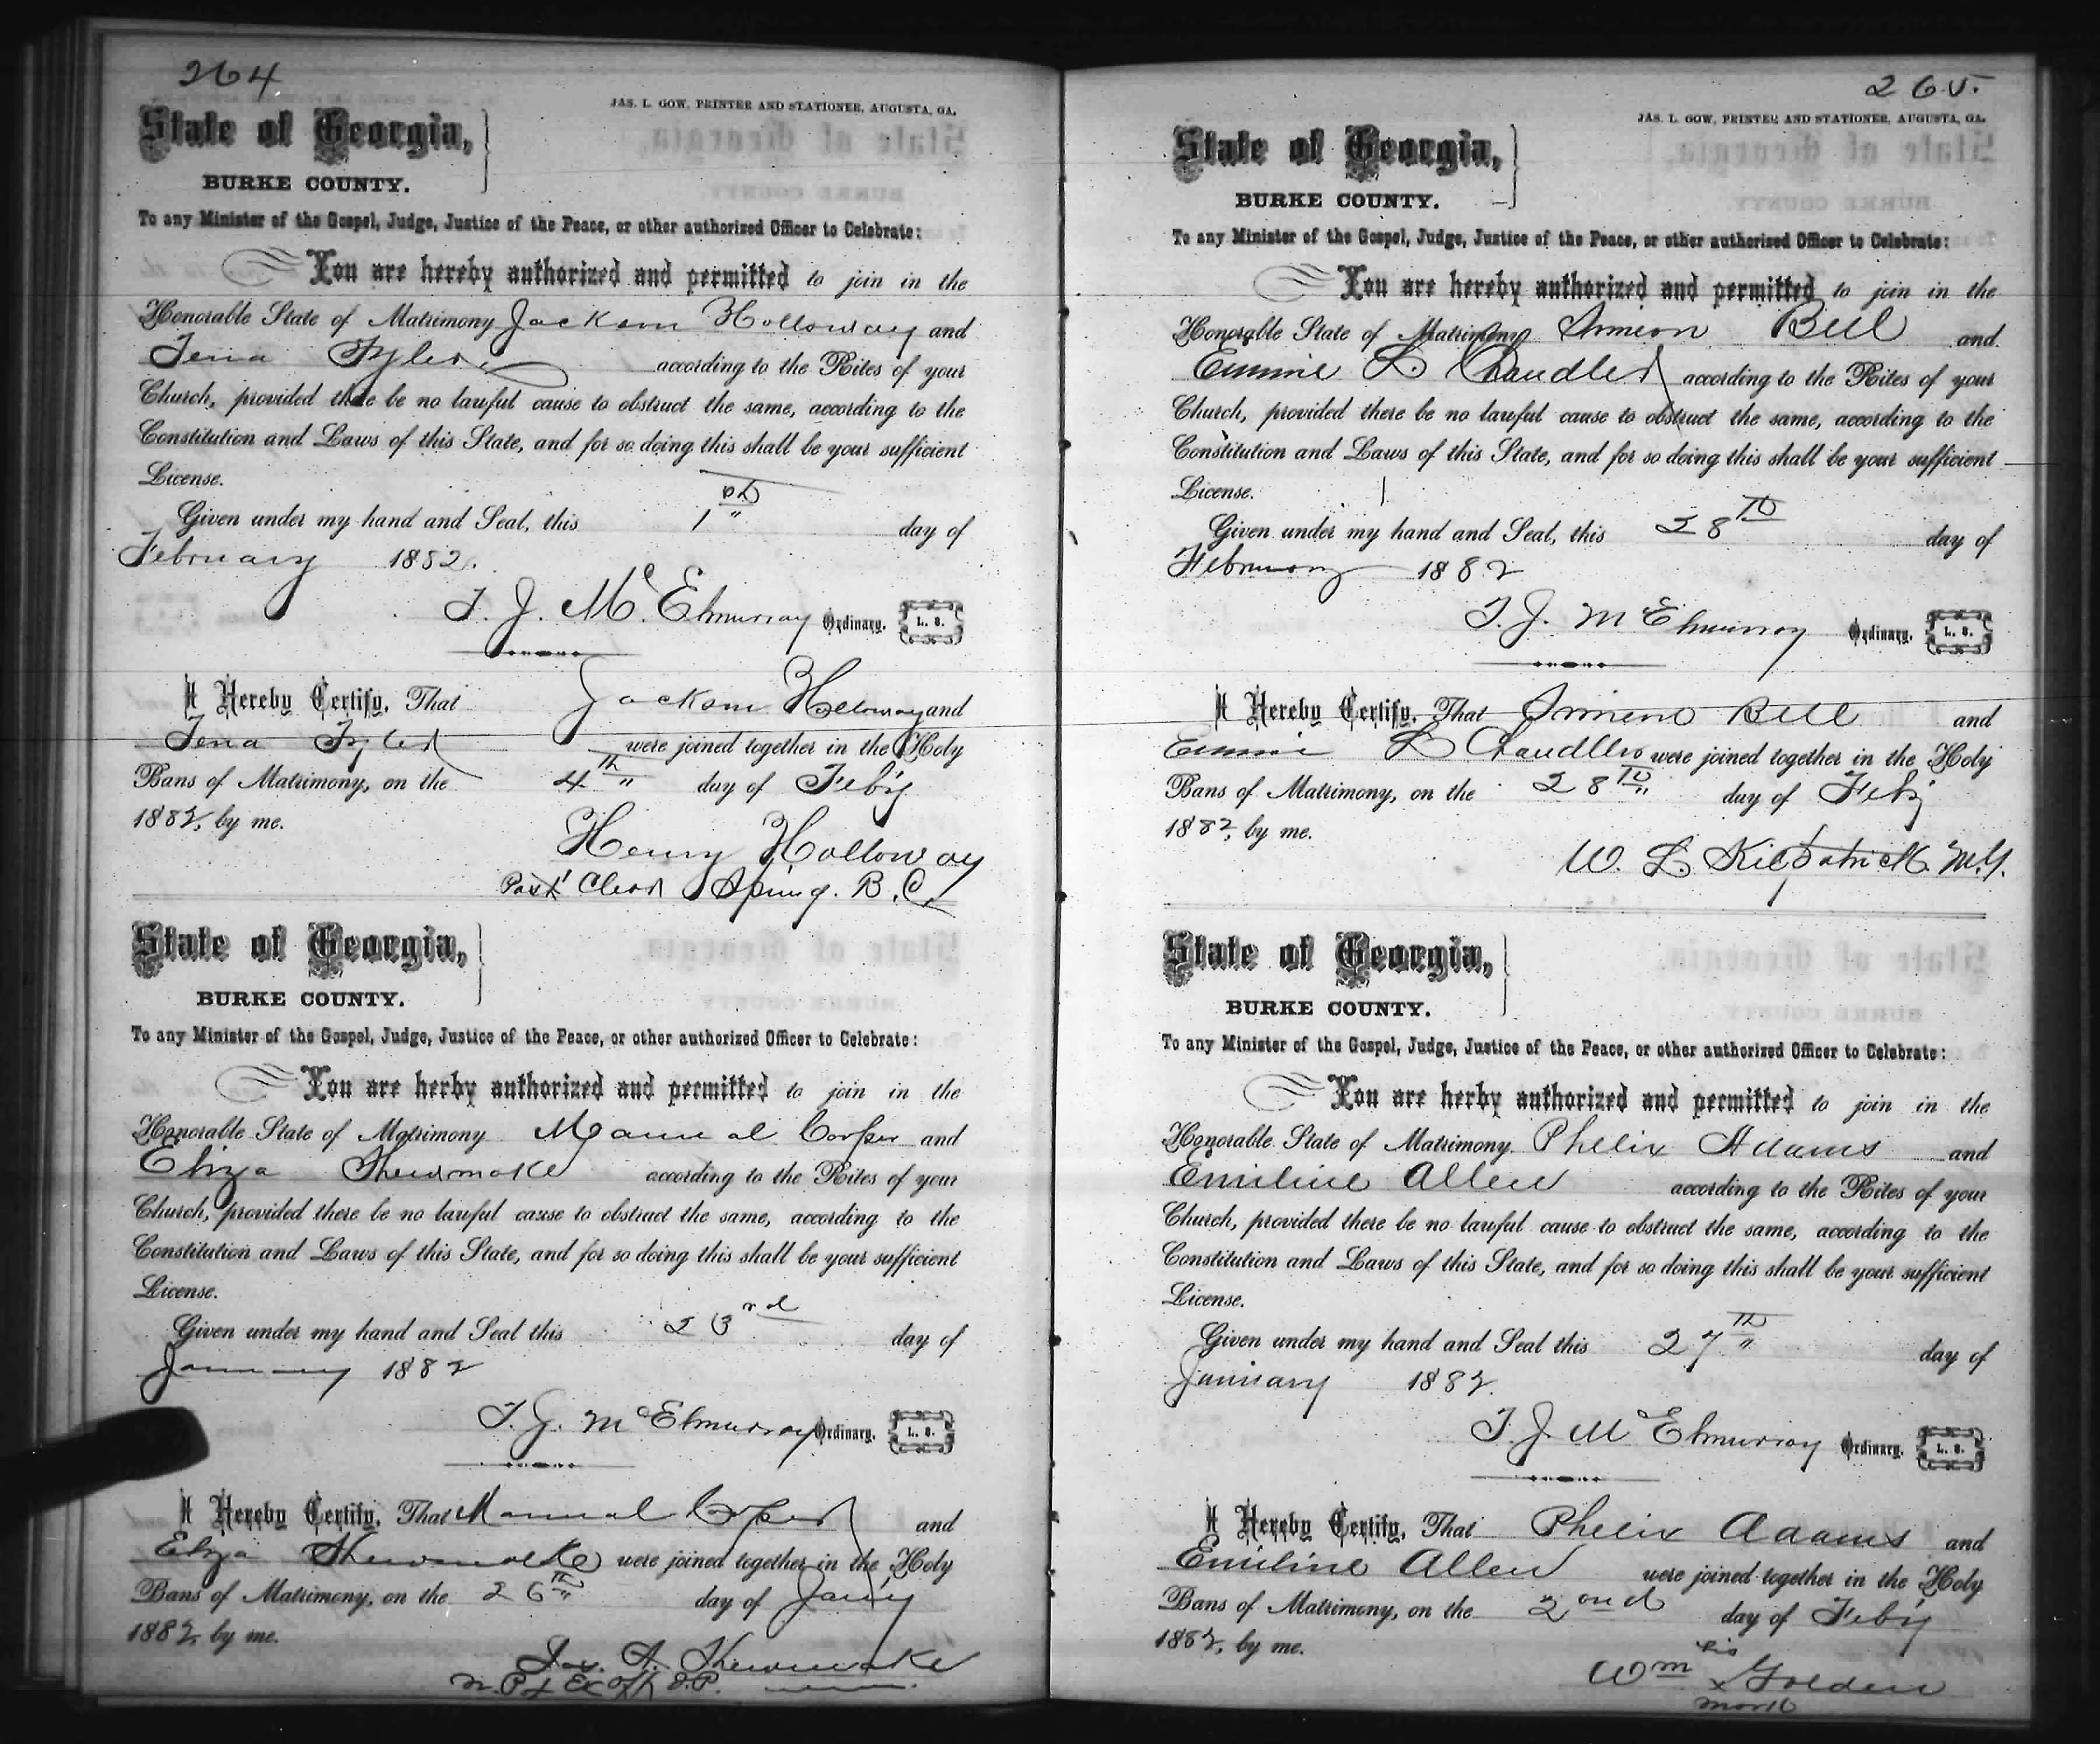 264
JAS. L. GOW, PRINTER AND STATIONER, AUGUSTA, GA.
State of Georgia,
BURKE COUNTY.
To any Minister of the Gospel, Judge, Justice of the Peace, or other authorized Officer to Celebrate:
You are hereby authorized and permitted to join in the
Honorable State of Matrimony Jackson Holloway and
Tena Tyler according to the Rites of your
Church, provided there be no lawful cause to obstruct the same, according to the
Constitution and Laws of this State, and for so doing this shall be your sufficient
License.
Given under my hand and Seal, this 1st day of
February 1882.
T. J. McElmurray Ordinary. L. S.
I Hereby Certify, That Jackson Holloway and
Tena Tyler were joined together in the Holy
Bans of Matrimony, on the 4th day of Feb'y
1882, by me.
Henry Holloway
Past Clear Spring. B. C.
State of Georgia,
BURKE COUNTY.
To any Minister of the Gospel, Judge, Justice of the Peace, or other authorized Officer to Celebrate:
You are herby authorized and permitted to join in the
Honorable State of Matrimony Manual Cooper and
Eliza Shewmake according to the Rites of your
Church, provided there be no lawful cause to obstruct the same, according to the
Constitution and Laws of this State, and for so doing this shall be your sufficient
License.
Given under my hand and Seal this 23rd day of
January 1882
T. J. McElmurray Ordinary. L. S.
I Hereby Certify, That Manual Cooper and
Eliza Shewmake were joined together in the Holy
Bans of Matrimony, on the 26th day of Jany
1882, by me.
Jas. A. Shewmake
N. P. & Ex Off J. P.
265.
JAS. L. GOW, PRINTER AND STATIONER, AUGUSTA, GA.
State of Georgia,
BURKE COUNTY.
To any Minister of the Gospel, Judge, Justice of the Peace, or other authorized Officer to Celebrate:
You are hereby authorized and permitted to join in the
Honorable State of Matrimony Simeon Bell and
Emmie L. Chandler according to the Rites of your
Church, provided there be no lawful cause to obstruct the same, according to the
Constitution and Laws of this State, and for so doing this shall be your sufficient
License.
Given under my hand and Seal, this 28th day of
February 1882
T. J. McElmurray Ordinary. L. S.
I Hereby Certify, That Simeon Bell and
Emmie L Chandler were joined together in the Holy
Bans of Matrimony, on the 28th day of Feby
1882, by me.
W. L. Kilpatrick. M.G.
State of Georgia,
BURKE COUNTY.
To any Minister of the Gospel, Judge, Justice of the Peace, or other authorized Officer to Celebrate:
You are herby authorized and permitted to join in the
Honorable State of Matrimony Phelix Adams and
Emiline Allen according to the Rites of your
Church, provided there be no lawful cause to obstruct the same, according to the
Constitution and Laws of this State, and for so doing this shall be your sufficient
License.
Given under my hand and Seal this 27th day of
January 1882.
T. J. McElmurray Ordinary. L. S.
I Hereby Certify, That Phelix Adams and
Emiline Allen were joined together in the Holy
Bans of Matrimony, on the 2ond day of Feb'y
1882, by me.
his
Wm x Golden
mark